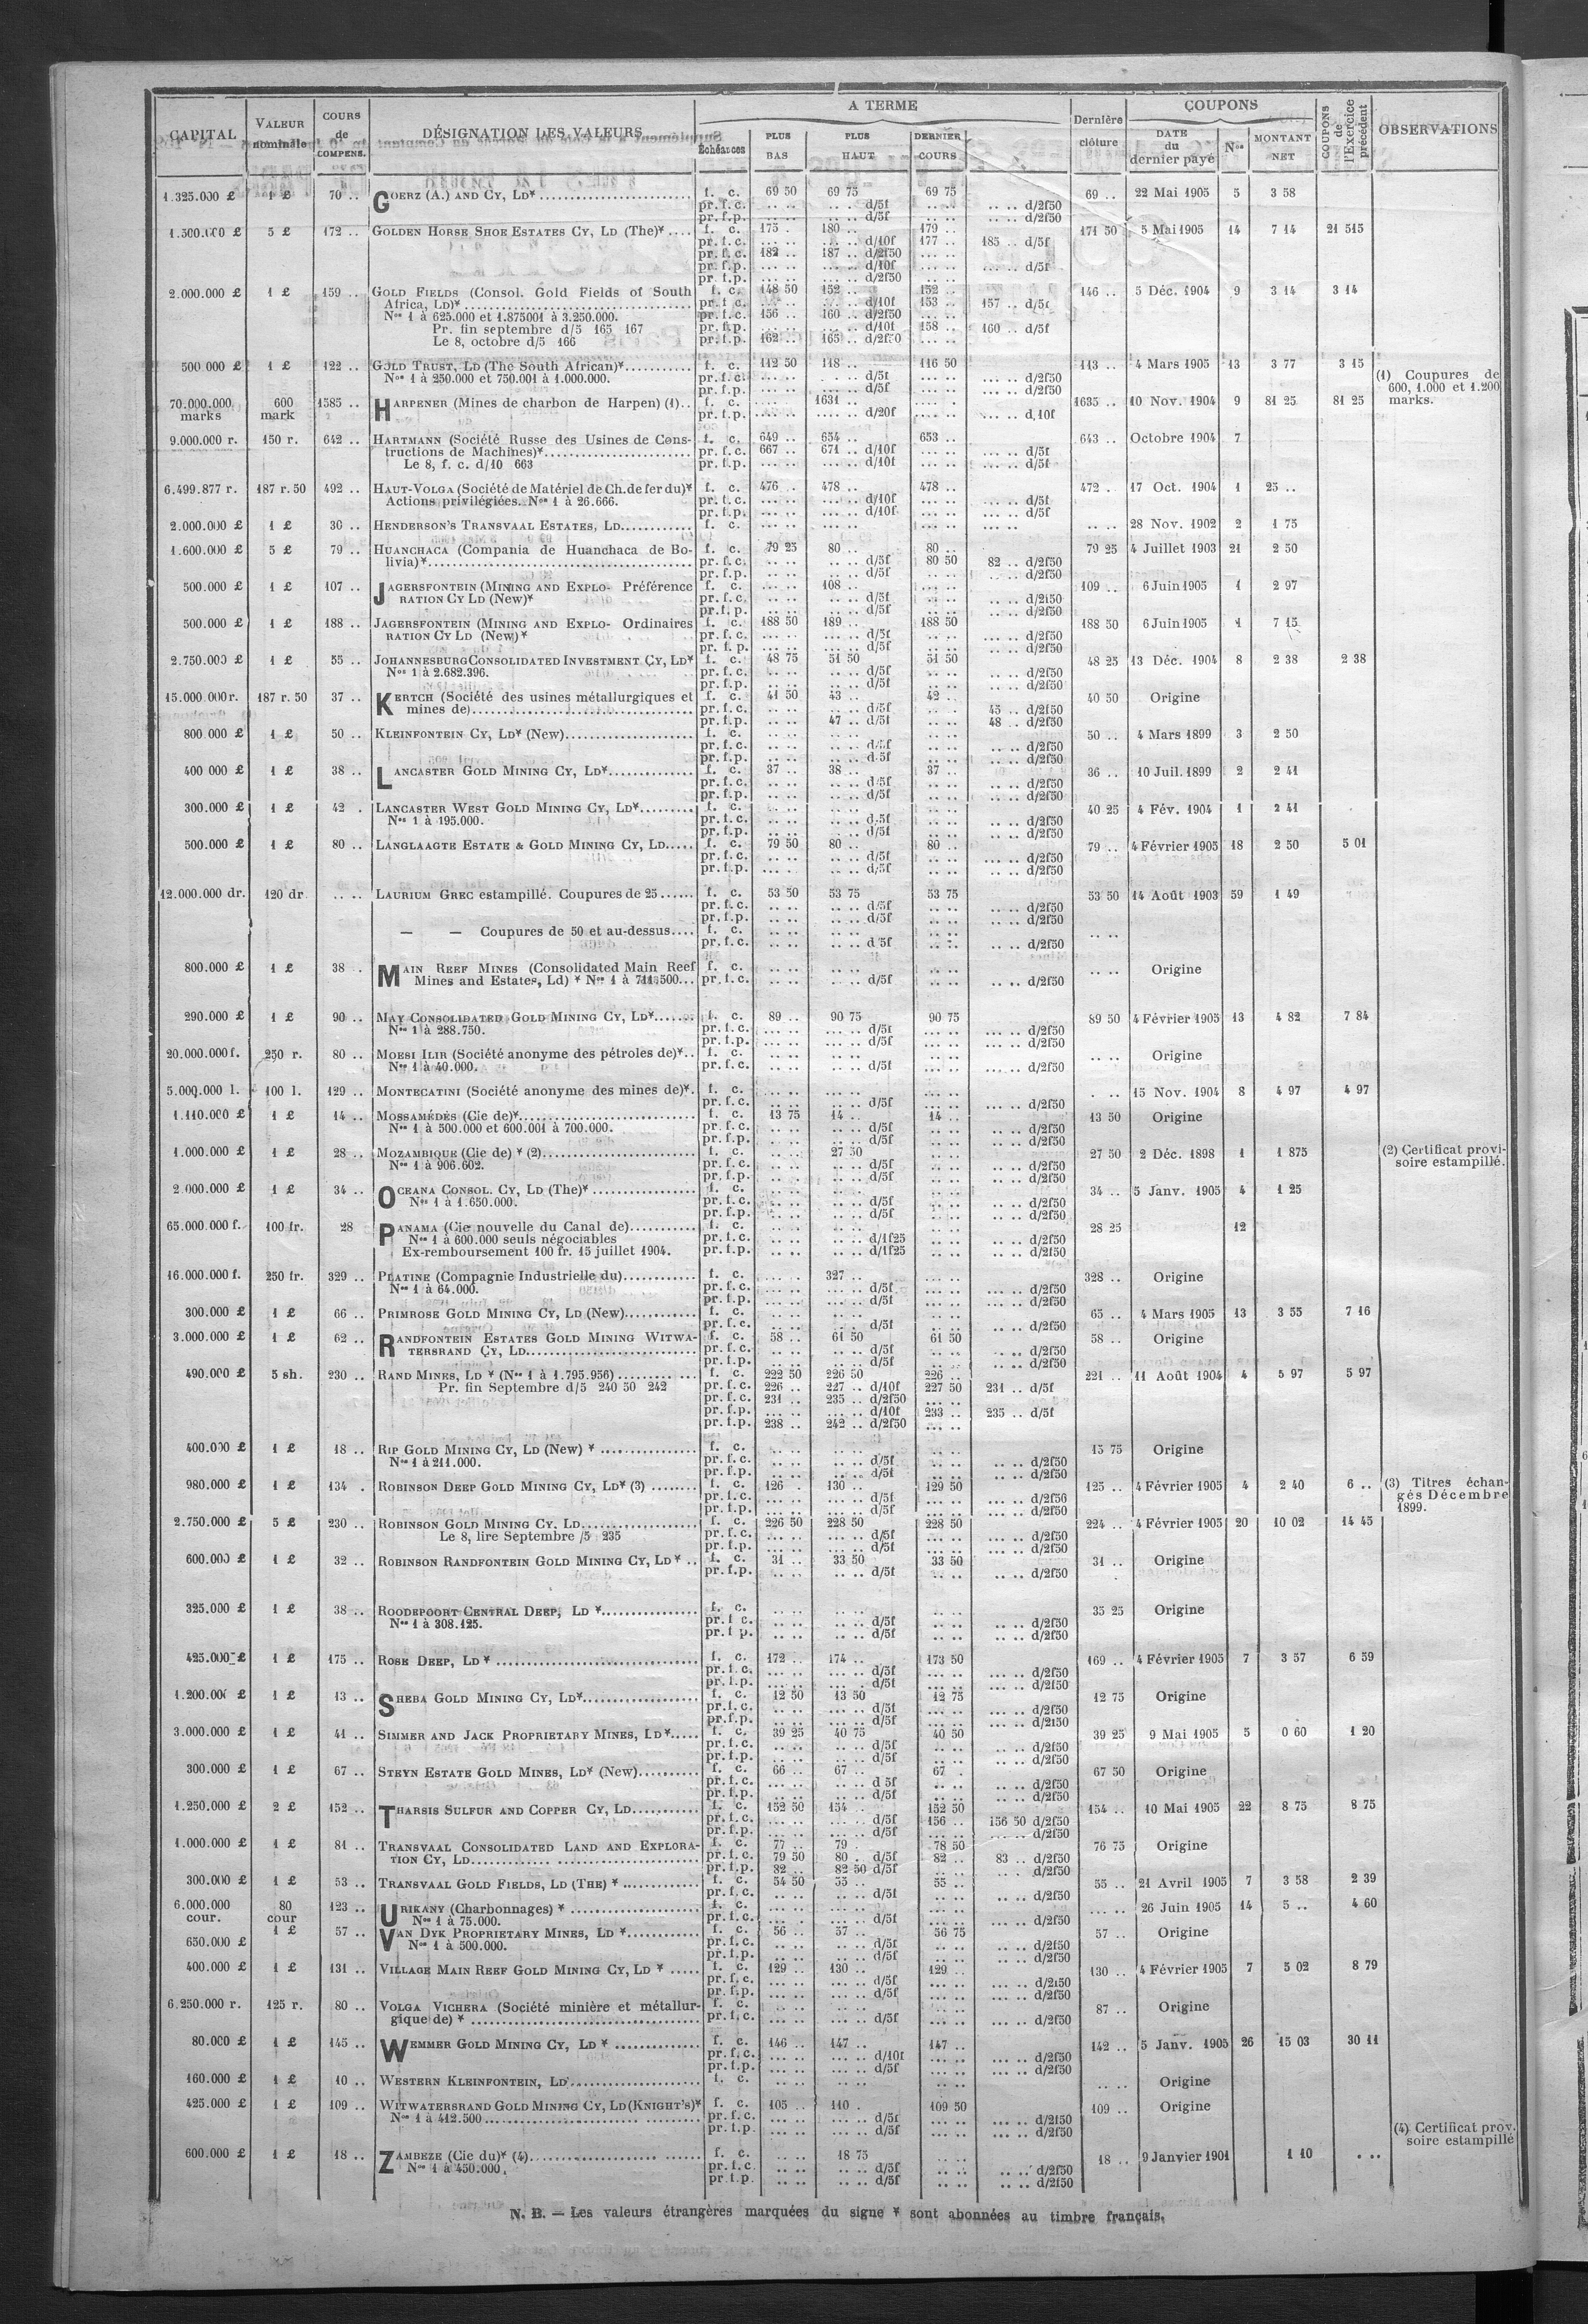 CAPITAL | VALEUR nominale | COURS de COMPENS. | DÉSIGNATION DES VALEURS | A TERME | Dernière clôture | COUPONS | COUPONS de l'Exercice précédent | OBSERVATIONS
Échéances | PLUS BAS | PLUS HAUT | DERNIER COURS | DATE du dernier payé | Nos | MONTANT NET
1.325.000 £ | 1 £ | 70 .. | GOERZ (A.) AND CY, LD* | f. c. | 69 50 | 69 75 | 69 75 | 69 .. | 22 Mai 1905 | 5 | 3 58
pr. f.c. | .. .. | .. .. d/5f | .. .. | .. .. d/2f50
pr. f.p. | .. .. | .. .. d/5f | .. .. | .. .. d/2f50
1.500.000 £ | 5 £ | 172 .. | GOLDEN HORSE SHOE ESTATES CY, LD (The)* | f. c. | 175 . | 180 .. | 179 .. | 171 50 | 5 Mai 1905 | 14 | 7 14 | 21 515
pr. f.c. | .. .. | .. .. d/10f | 177 .. | 185 .. d/5f
pr. f.c. | 182 .. | 187 .. d/2f50 | .. ..
pr. f.p. | .. .. | .. .. d/10f | .. .. | .. .. d/5f
pr. f.p. | .. .. | .. .. d/2f50
2.000.000 £ | 1 £ | 159 .. | GOLD FIELDS (Consol. Gold Fields of South | f. c. | 148 50 | 152 .. | 152 .. | 146 .. | 5 Déc. 1904 | 9 | 3 14 | 3 14
Africa, LD)* | pr. f.c. | .. .. | .. .. d/10f | 153 .. | 157 .. d/5f
Nos 1 à 625.000 et 1.875001 à 3.250.000. | pr. f.c. | 156 .. | 160 .. d/2f50 | .. ..
Pr. fin septembre d/5 165 167 | pr. f.p. | .. .. | .. .. d/10f | 158 .. | 160 .. d/5f
Le 8, octobre d/5 166 | pr. f.p. | 162 .. | 165 .. d/2f50
500.000 £ | 1 £ | 122 .. | GOLD TRUST, LD (The South African)* | f. c. | 112 50 | 118 .. | 116 50 | 113 .. | 4 Mars 1905 | 13 | 3 77 | 3 15
Nos 1 à 250.000 et 750.001 à 1.000.000. | pr. f.c. | .. .. | .. .. d/5f | .. .. | .. .. d/2f50
pr. f.p. | .. .. | .. .. d/5f | .. .. | .. .. d/2f50
(1) Coupures de 600, 1.000 et 1.200 marks.
70.000.000 marks | 600 mark | 1585 .. | HARPENER (Mines de charbon de Harpen) (1) | f. c. | .. .. | 1631 .. | .. .. | 1635 .. | 10 Nov. 1904 | 9 | 81 25 | 81 25
pr. f.p. | .. .. | .. .. d/20f | .. .. | .. .. d/10f
9.000.000 r. | 150 r. | 642 .. | HARTMANN (Société Russe des Usines de Cons- | f. c. | 649 .. | 654 .. | 653 .. | 643 .. | Octobre 1904 | 7
tructions de Machines)* | pr. f.c. | 667 .. | 671 .. d/10f | .. .. | .. .. d/5f
Le 8, f. c. d/10 663 | pr. f.p. | .. .. | .. .. d/10f | .. .. | .. .. d/5f
6.499.877 r. | 187 r. 50 | 492 .. | HAUT-VOLGA (Société de Matériel de Ch. de fer du)* | f. c. | 476 .. | 478 .. | 478 .. | 472 . | 17 Oct. 1904 | 1 | 25 ..
Actions privilégiées. Nos 1 à 26.666. | pr. f.c. | .. .. | .. .. d/10f | .. .. | .. .. d/5f
pr. f.p. | .. .. | .. .. d/10f | .. .. | .. .. d/5f
2.000.000 £ | 1 £ | 30 .. | HENDERSON'S TRANSVAAL ESTATES, LD | f. c. | .. .. | .. .. | .. .. | .. .. | 28 Nov. 1902 | 2 | 1 75
1.600.000 £ | 5 £ | 79 .. | HUANCHACA (Compania de Huanchaca de Bo- | f. c. | 79 25 | 80 .. | 80 .. | 79 25 | 4 Juillet 1903 | 21 | 2 50
livia)* | pr. f.c. | .. .. | .. .. d/5f | 80 50 | 82 .. d/2f50
pr. f.p. | .. .. | .. .. d/5f | .. .. | .. .. d/2f50
500.000 £ | 1 £ | 107 .. | JAGERSFONTEIN (MINING AND EXPLO- Préférence | f. c. | .. .. | 108 .. | .. .. | 109 .. | 6 Juin 1905 | 1 | 2 97
RATION CY LD (New)* | pr. f.c. | .. .. | .. .. d/5f | .. .. | .. .. d/2f50
pr. f.p. | .. .. | .. .. d/5f | .. .. | .. .. d/2f50
500.000 £ | 1 £ | 188 .. | JAGERSFONTEIN (MINING AND EXPLO- Ordinaires | f. c. | 188 50 | 189 .. | 188 50 | 188 50 | 6 Juin 1905 | 1 | 7 15
RATION CY LD (New)* | pr. f.c. | .. .. | .. .. d/5f | .. .. | .. .. d/2f50
pr. f.p. | .. .. | .. .. d/5f | .. .. | .. .. d/2f50
2.750.000 £ | 1 £ | 55 .. | JOHANNESBURG CONSOLIDATED INVESTMENT CY, LD* | f. c. | 48 75 | 51 50 | 51 50 | 48 25 | 13 Déc. 1904 | 8 | 2 38 | 2 38
Nos 1 à 2.682.396. | pr. f.c. | .. .. | .. .. d/5f | .. .. | .. .. d/2f50
pr. f.p. | .. .. | .. .. d/5f | .. .. | .. .. d/2f50
15.000.000 r. | 187 r. 50 | 37 .. | KERTCH (Société des usines métallurgiques et | f. c. | 41 50 | 43 .. | 42 .. | 40 50 | Origine
mines de) | pr. f.c. | .. .. | .. .. d/5f | .. .. | 45 .. d/2f50
pr. f.p. | .. .. | 47 .. d/5f | .. .. | 48 .. d/2f50
800.000 £ | 1 £ | 50 .. | KLEINFONTEIN CY, LD* (New) | f. c. | .. .. | .. .. | .. .. | 50 .. | 4 Mars 1899 | 3 | 2 50
pr. f.c. | .. .. | .. .. d/5f | .. .. | .. .. d/2f50
pr. f.p. | .. .. | .. .. d/5f | .. .. | .. .. d/2f50
400.000 £ | 1 £ | 38 .. | LANCASTER GOLD MINING CY, LD* | f. c. | 37 .. | 38 .. | 37 .. | 36 .. | 10 Juil. 1899 | 2 | 2 41
pr. f.c. | .. .. | .. .. d/5f | .. .. | .. .. d/2f50
pr. f.p. | .. .. | .. .. d/5f | .. .. | .. .. d/2f50
300.000 £ | 1 £ | 42 . | LANCASTER WEST GOLD MINING CY, LD* | f. c. | .. .. | .. .. | .. .. | 40 25 | 4 Fév. 1904 | 1 | 2 41
Nos 1 à 195.000. | pr. f.c. | .. .. | .. .. d/5f | .. .. | .. .. d/2f50
pr. f.p. | .. .. | .. .. d/5f | .. .. | .. .. d/2f50
500.000 £ | 1 £ | 80 .. | LANGLAAGTE ESTATE & GOLD MINING CY, LD | f. c. | 79 50 | 80 .. | 80 .. | 79 .. | 4 Février 1905 | 18 | 2 50 | 5 01
pr. f.c. | .. .. | .. .. d/5f | .. .. | .. .. d/2f50
pr. f.p. | .. .. | .. .. d/5f | .. .. | .. .. d/2f50
12.000.000 dr. | 120 dr | .. .. | LAURIUM GREC estampillé. Coupures de 25 | f. c. | 53 50 | 53 75 | 53 75 | 53 50 | 14 Août 1903 | 59 | 1 49
pr. f.c. | .. .. | .. .. d/5f | .. .. | .. .. d/2f50
pr. f.p. | .. .. | .. .. d/5f | .. .. | .. .. d/2f50
— — Coupures de 50 et au-dessus | f. c. | .. .. | .. .. | .. .. | .. ..
pr. f.c. | .. .. | .. .. d/5f | .. .. | .. .. d/2f50
800.000 £ | 1 £ | 38 . | MAIN REEF MINES (Consolidated Main Reef | f. c. | .. .. | .. .. | .. .. | .. .. | Origine
Mines and Estates, Ld) * Nos 1 à 711.500 | pr. f.c. | .. .. | .. .. d/5f | .. .. | .. .. d/2f50
290.000 £ | 1 £ | 90 .. | MAY CONSOLIDATED GOLD MINING CY, LD* | f. c. | 89 .. | 90 75 | 90 75 | 89 50 | 4 Février 1905 | 13 | 4 82 | 7 84
Nos 1 à 288.750. | pr. f.c. | .. .. | .. .. d/5f | .. .. | .. .. d/2f50
pr. f.p. | .. .. | .. .. d/5f | .. .. | .. .. d/2f50
20.000.000 f. | 250 r. | 80 .. | MOESI ILIR (Société anonyme des pétroles de)* | f. c. | .. .. | .. .. | .. .. | .. .. | Origine
Nos 1 à 40.000. | pr. f.c. | .. .. | .. .. d/5f | .. .. | .. .. d/2f50
5.000.000 l. | 100 l. | 129 .. | MONTECATINI (Société anonyme des mines de)* | f. c. | .. .. | .. .. | .. .. | . .. | 15 Nov. 1904 | 8 | 4 97 | 4 97
pr. f.c. | .. .. | .. .. d/5f | .. .. | .. .. d/2f50
1.110.000 £ | 1 £ | 14 .. | MOSSAMÉDÈS (Cie de)* | f. c. | 13 75 | 14 .. | 14 .. | 13 50 | Origine
Nos 1 à 500.000 et 600.001 à 700.000. | pr. f.c. | .. .. | .. .. d/5f | .. .. | .. .. d/2f50
pr. f.p. | .. .. | .. .. d/5f | .. .. | .. .. d/2f50
1.000.000 £ | 1 £ | 28 .. | MOZAMBIQUE (Cie de) * (2) | f. c. | .. .. | 27 50 | .. .. | 27 50 | 2 Déc. 1898 | 1 | 1 875 | (2) Certificat provi-
Nos 1 à 906.602. | pr. f.c. | .. .. | .. .. d/5f | .. .. | .. .. d/2f50 | soire estampillé.
pr. f.p. | .. .. | .. .. d/5f | .. .. | .. .. d/2f50
2.000.000 £ | 1 £ | 34 .. | OCEANA CONSOL. CY, LD (The)* | f. c. | .. .. | .. .. | .. .. | 34 .. | 5 Janv. 1905 | 4 | 1 25
Nos 1 à 1.650.000. | pr. f.c. | .. .. | .. .. d/5f | .. .. | .. .. d/2f50
pr. f.p. | .. .. | .. .. d/5f | .. .. | .. .. d/2f50
65.000.000 f. | 100 fr. | 28 | PANAMA (Cie nouvelle du Canal de) | f. c. | .. .. | .. .. | .. .. | 28 25 | 12
Nos 1 à 600.000 seuls négociables | pr. f.c. | .. .. | .. .. d/1f25 | .. .. | .. .. d/2f50
Ex-remboursement 100 fr. 15 juillet 1904. | pr. f.p. | .. .. | .. .. d/1f25 | .. .. | .. .. d/2f50
16.000.000 f. | 250 fr. | 329 .. | PLATINE (Compagnie Industrielle du) | f. c. | .. .. | 327 .. | .. .. | 328 .. | Origine
Nos 1 à 64.000. | pr. f.c. | .. .. | .. .. d/5f | .. .. | .. .. d/2f50
pr. f.p. | .. .. | .. .. d/5f | .. .. | .. .. d/2f50
300.000 £ | 1 £ | 66 .. | PRIMROSE GOLD MINING CY, LD (New) | f. c. | .. .. | .. .. | .. .. | 65 .. | 4 Mars 1905 | 13 | 3 55 | 7 16
pr. f.c. | .. .. | .. .. d/5f | .. .. | .. .. d/2f50
3.000.000 £ | 1 £ | 62 .. | RANDFONTEIN ESTATES GOLD MINING WITWA- | f. c. | 58 .. | 61 50 | 61 50 | 58 .. | Origine
TERSRAND CY, LD | pr. f.c. | .. .. | .. .. d/5f | .. .. | .. .. d/2f50
pr. f.p. | .. .. | .. .. d/5f | .. .. | .. .. d/2f50
490.000 £ | 5 sh. | 230 .. | RAND MINES, LD * (Nos 1 à 1.795.956) | f. c. | 222 50 | 226 50 | 226 .. | 221 .. | 11 Août 1904 | 4 | 5 97 | 5 97
Pr. fin Septembre d/5 240 50 242 | pr. f.c. | 226 .. | 227 .. d/10f | 227 50 | 231 .. d/5f
pr. f.c. | 231 .. | 235 .. d/2f50 | .. ..
pr. f.p. | .. .. | .. .. d/10f | 233 .. | 235 .. d/5f
pr. f.p. | 238 .. | 242 .. d/2f50 | .. ..
400.000 £ | 1 £ | 18 .. | RIP GOLD MINING CY, LD (New) * | f. c. | .. .. | .. .. | .. .. | 15 75 | Origine
Nos 1 à 211.000. | pr. f.c. | .. .. | .. .. d/5f | .. .. | .. .. d/2f50
pr. f.p. | .. .. | .. .. d/5f | .. .. | .. .. d/2f50
980.000 £ | 1 £ | 134 . | ROBINSON DEEP GOLD MINING CY, LD* (3) | f. c. | 126 . | 130 .. | 129 50 | 125 .. | 4 Février 1905 | 4 | 2 40 | 6 .. | (3) Titres échan-
pr. f.c. | .. .. | .. .. d/5f | .. .. | .. .. d/2f50 | gés Décembre
pr. f.p. | .. .. | .. .. d/5f | .. .. | .. .. d/2f50 | 1899.
2.750.000 £ | 5 £ | 230 .. | ROBINSON GOLD MINING CY, LD | f. c. | 226 50 | 228 50 | 228 50 | 224 .. | 4 Février 1905 | 20 | 10 02 | 14 45
Le 8, lire Septembre /5 235 | pr. f.c. | .. .. | .. .. d/5f | .. .. | .. .. d/2f50
pr. f.p. | .. .. | .. .. d/5f | .. .. | .. .. d/2f50
600.000 £ | 1 £ | 32 .. | ROBINSON RANDFONTEIN GOLD MINING CY, LD* | f. c. | 31 .. | 33 50 | 33 50 | 31 .. | Origine
pr. f.p. | .. .. | .. .. d/5f | .. .. | .. .. d/2f50
325.000 £ | 1 £ | 38 .. | ROODEPOORT CENTRAL DEEP, LD * | f. c. | .. .. | .. .. | .. .. | 35 25 | Origine
Nos 1 à 308.125. | pr. f.c. | .. .. | .. .. d/5f | .. .. | .. .. d/2f50
pr. f.p. | .. .. | .. .. d/5f | .. .. | .. .. d/2f50
425.000 £ | 1 £ | 175 .. | ROSE DEEP, LD * | f. c. | 172 .. | 174 .. | 173 50 | 169 .. | 4 Février 1905 | 7 | 3 57 | 6 59
pr. f.c. | .. .. | .. .. d/5f | .. .. | .. .. d/2f50
pr. f.p. | .. .. | .. .. d/5f | .. .. | .. .. d/2f50
1.200.000 £ | 1 £ | 13 .. | SHEBA GOLD MINING CY, LD* | f. c. | 12 50 | 13 50 | 12 75 | 12 75 | Origine
pr. f.c. | .. .. | .. .. d/5f | .. .. | .. .. d/2f50
pr. f.p. | .. .. | .. .. d/5f | .. .. | .. .. d/2f50
3.000.000 £ | 1 £ | 41 .. | SIMMER AND JACK PROPRIETARY MINES, LD* | f. c. | 39 25 | 40 75 | 40 50 | 39 25 | 9 Mai 1905 | 5 | 0 60 | 1 20
pr. f.c. | .. .. | .. .. d/5f | .. .. | .. .. d/2f50
pr. f.p. | .. .. | .. .. d/5f | .. .. | .. .. d/2f50
300.000 £ | 1 £ | 67 .. | STEYN ESTATE GOLD MINES, LD* (New) | f. c. | 66 .. | 67 .. | 67 . | 67 50 | Origine
pr. f.c. | .. .. | .. .. d 5f | .. .. | .. .. d/2f50
pr. f.p. | .. .. | .. .. d/5f | .. .. | .. .. d/2f50
1.250.000 £ | 2 £ | 152 .. | THARSIS SULFUR AND COPPER CY, LD | f. c. | 152 50 | 154 .. | 152 50 | 154 .. | 10 Mai 1905 | 22 | 8 75 | 8 75
pr. f.c. | .. .. | .. .. d/5f | 156 .. | 156 50 d/2f50
pr. f.p. | .. .. | .. .. d/5f | .. .. | .. .. d/2f50
1.000.000 £ | 1 £ | 81 .. | TRANSVAAL CONSOLIDATED LAND AND EXPLORA- | f. c. | 77 .. | 79 . | 78 50 | 76 75 | Origine
TION CY, LD | pr. f.c. | 79 50 | 80 . d/5f | 82 .. | 83 .. d/2f50
pr. f.p. | 82 .. | 82 50 d/5f | .. .. | .. .. d/2f50
300.000 £ | 1 £ | 53 .. | TRANSVAAL GOLD FIELDS, LD (THE) * | f. c. | 54 50 | 55 .. | 55 .. | 55 .. | 21 Avril 1905 | 7 | 3 58 | 2 39
pr. f.c. | .. .. | .. .. d/5f | .. .. | .. .. d/2f50
6.000.000 cour. | 80 cour | 123 .. | URIKANY (Charbonnages) * | f. c. | .. .. | .. .. | .. .. | .. .. | 26 Juin 1905 | 14 | 5 .. | 4 60
Nos 1 à 75.000. | pr. f.c. | .. .. | .. .. d/5f | .. .. | .. .. d/2f50
650.000 £ | 1 £ | 57 .. | VAN DYK PROPRIETARY MINES, LD * | f. c. | 56 .. | 57 .. | 56 75 | 57 .. | Origine
Nos 1 à 500.000. | pr. f.c. | .. .. | .. .. d/5f | .. .. | .. .. d/2f50
pr. f.p. | .. .. | .. .. d/5f | .. .. | .. .. d/2f50
400.000 £ | 1 £ | 131 .. | VILLAGE MAIN REEF GOLD MINING CY, LD * | f. c. | 129 .. | 130 .. | 129 .. | 130 .. | 4 Février 1905 | 7 | 5 02 | 8 79
pr. f.c. | .. .. | .. .. d/5f | .. .. | .. .. d/2f50
pr. f.p. | .. .. | .. .. d/5f | .. .. | .. .. d/2f50
6.250.000 r. | 125 r. | 80 .. | VOLGA VICHERA (Société minière et métallur- | f. c. | .. .. | .. .. | .. .. | 87 .. | Origine
gique de) * | pr. f.c. | .. .. | .. .. d/5f | .. .. | .. .. d/2f50
80.000 £ | 1 £ | 145 .. | WEMMER GOLD MINING CY, LD * | f. c. | 146 .. | 147 .. | 147 .. | 142 .. | 5 Janv. 1905 | 26 | 15 03 | 30 11
pr. f.c. | .. .. | .. .. d/10f | .. .. | .. .. d/2f50
pr. f.p. | .. .. | .. .. d/5f | .. .. | .. .. d/2f50
160.000 £ | 1 £ | 10 .. | WESTERN KLEINFONTEIN, LD | f. c. | .. .. | .. .. | .. .. | .. .. | Origine
425.000 £ | 1 £ | 109 .. | WITWATERSRAND GOLD MINING CY, LD (KNIGHT'S)* | f. c. | 105 .. | 110 . | 109 50 | 109 .. | Origine
Nos 1 à 412.500 | pr. f.c. | .. .. | .. .. d/5f | .. .. | .. .. d/2f50
pr. f.p. | .. .. | .. .. d/5f | .. .. | .. .. d/2f50
(4) Certificat prov.
soire estampillé
600.000 £ | 1 £ | 18 .. | ZAMBEZE (Cie du)* (4) | f. c. | .. .. | 18 75 | .. .. | 18 .. | 9 Janvier 1901 | 1 10 | . ..
Nos 1 à 450.000. | pr. f.c. | .. .. | .. .. d/5f | .. .. | .. .. d/2f50
pr. f.p. | .. .. | .. .. d/5f | .. .. | .. .. d/2f50
N. B. — Les valeurs étrangères marquées du signe * sont abonnées au timbre français.